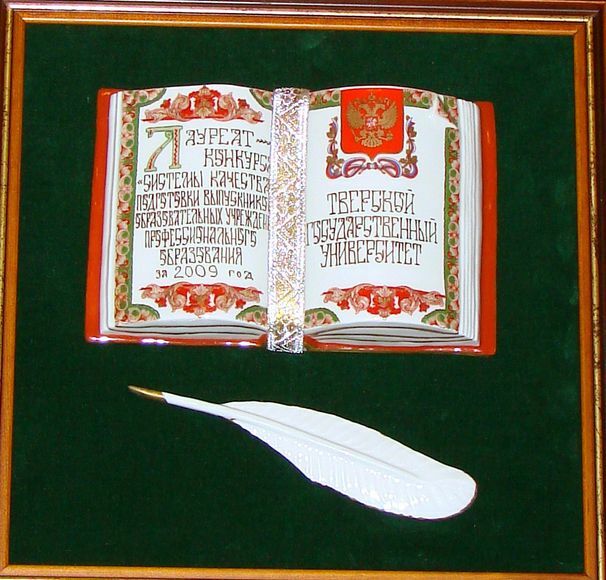 ЛАУРЕАТ
КОНКУРСА
«СИСТЕМЫ КАЧЕСТВА
ПОДГОТОВКИ ВЫПУСКНИКОВ
ОБРАЗОВАТЕЛЬНЫХ УЧРЕЖДЕНИЙ
ПРОФЕССИОНАЛЬНОГО
ОБРАЗОВАНИЯ
ЗА 2009 ГОД
ТВЕРСКОЙ
ГОСУДАРСТВЕННЫЙ
УНИВЕРСИТЕТ